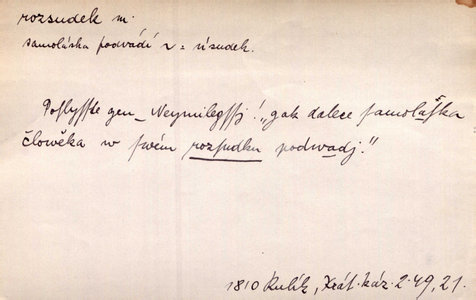 rozsudek m.
samoláska podvádí v = úsudek.
Poslyšste gen_ Neymilegssj! „gak dalece samoláska
člowěka w swém rozsudku podwadj."
1810 Kulík, Krát. káz. 2.49,21.